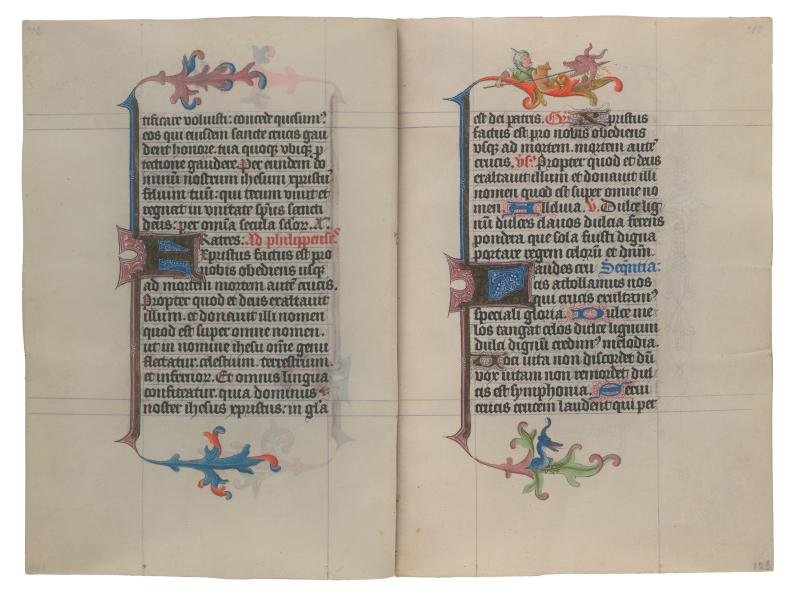 tificare voluisti: concede quesum⁹
eos qui eiusdem sancte crucis gau
dent honore. tua quoq; vbiq; p
tectione gaudere. Per eundem do
minū nostrum ihesum xpristū
filium tuū: qui tecum viuit et
regnat in vnitate sp̄us sancti
deus: per om̄ia secula sclor̄.
Ratres. Ad philippense⁹
Xpristus factus est pro
nobis obediens usq;
ad mortem mortem autē crucis.
Propter quod et deus exaltauit
illum. et donauit illi nomen
quod est super omne nomen.
ut in nomine ihesu om̄e genu
flectatur. celestium. terrestrium.
et inferior̄. Et omnis lingua
confiteatur. quia dominus
noster ihesus xpristus: in gl̄a
est dei patris. Xpristus
factus est pro nobis obediens
vsq; ad mortem. mortem autē
crucis. Vs̄. Propter quod et deus
exaltauit illum et donauit illi
nomen quod est super omne no
men. Alleluia. V. Dulce lig
nū dulces clauos dulcia ferens
pondera que sola fuisti digna
portare regem celorū et dnm̄.
Laudes cru Seq̄ntia:
cis attollamus nos
qui crucis exultam⁹
speciali gloria. Dulce me
los tangat celos dulce lignum
dulci dignū credim⁹ melodia.
Uoci uita non discordet dū
vox uitam non remordet dul
cis est symphonia. Serui
crucis crucem laudent qui per
125